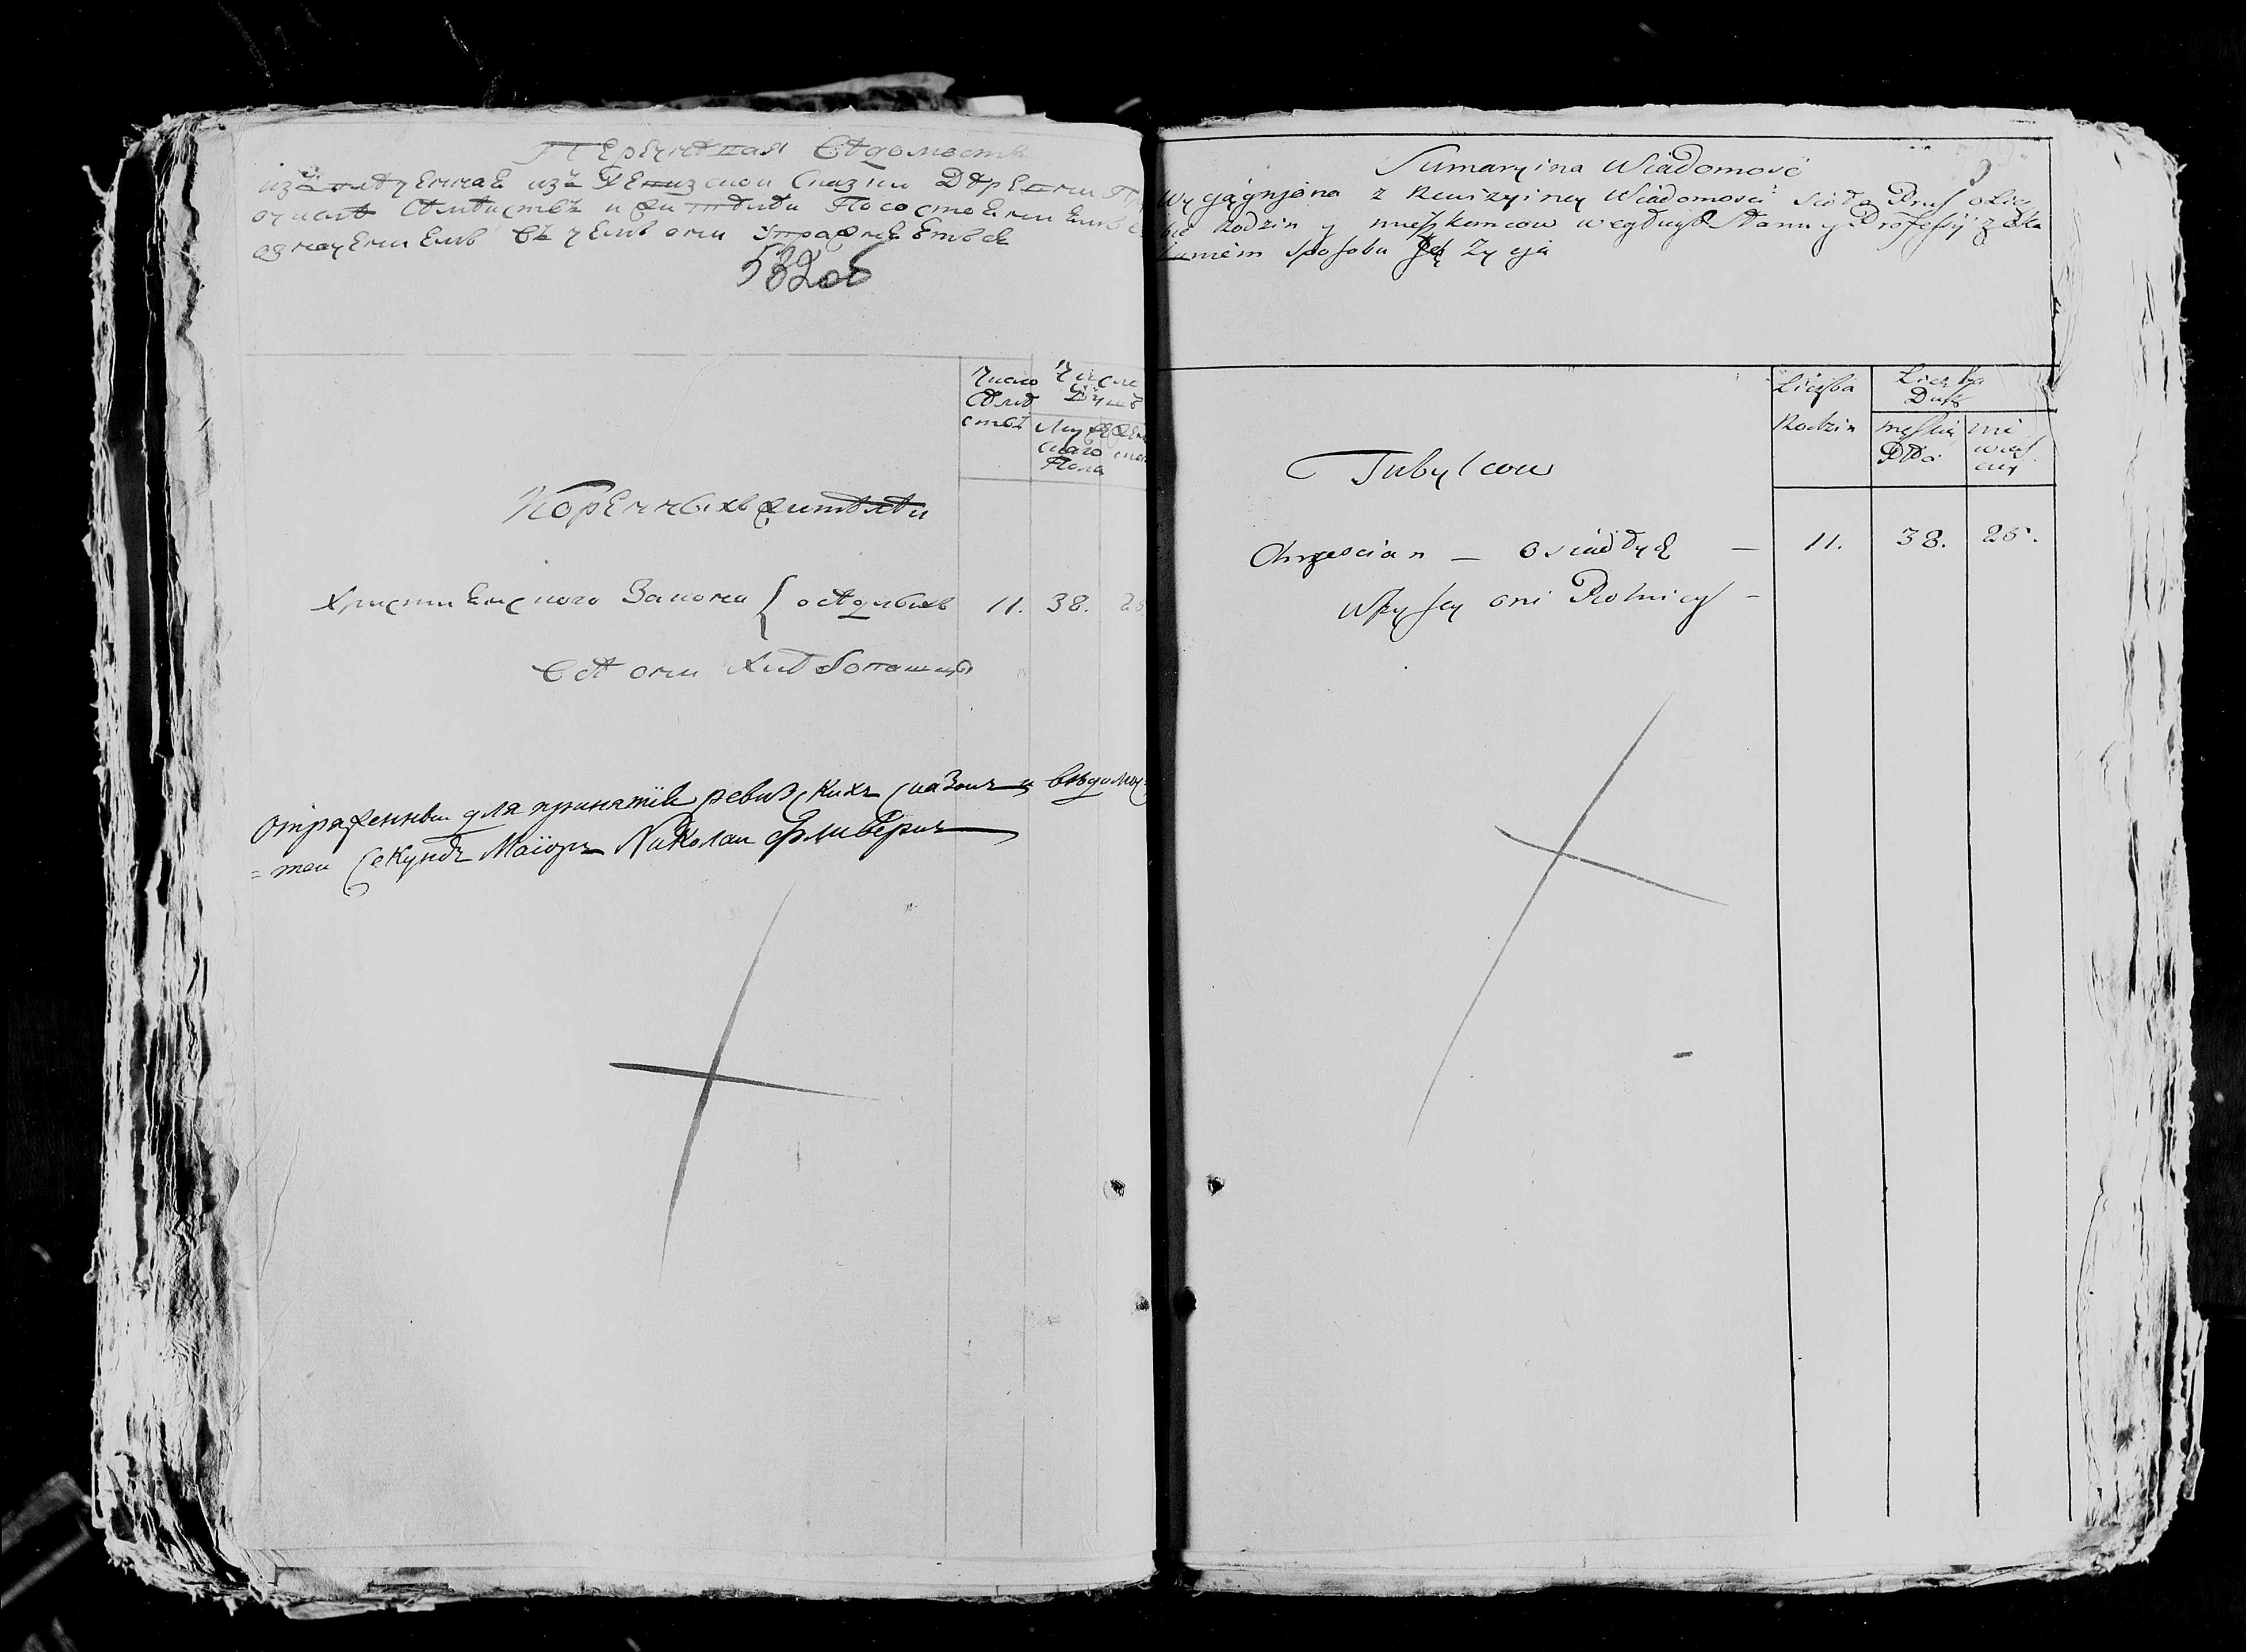 Перечневая Ведомость
извлеченная из Ревизской Сказки Деревни
о числе Семействъ и жителей По состоянiемъ
означенiемъ Въ чемъ они упражняются
532об
Число Семействъ
Число Душъ
Мужескаго Пола
Женского
Коренныхъ жителей
Христiенского Закона { оседлыхъ 11. 38. 25
Все они Хлебопашцы
отряженный для принятiя ревизскихъ сказокъ и ведомос=
=теи Секундъ Маiоръ Николаи Фливеркъ
Sumaryina Wiadomość
Wyciągnjona z Rewizyiney Wiadomosci Sioła Prus o Licz
bie Rodzin y mieszkancow według Stanu y Professyi z oka
zaniem sposobu Jch Zycia
Liczba Rodzin
Liczba Dusz
męskiey Płci
niewiesciey
Tubylcow
Chrzescian — osiadłych — 11. 38. 25.
Wszyscy oni Rolnicy —